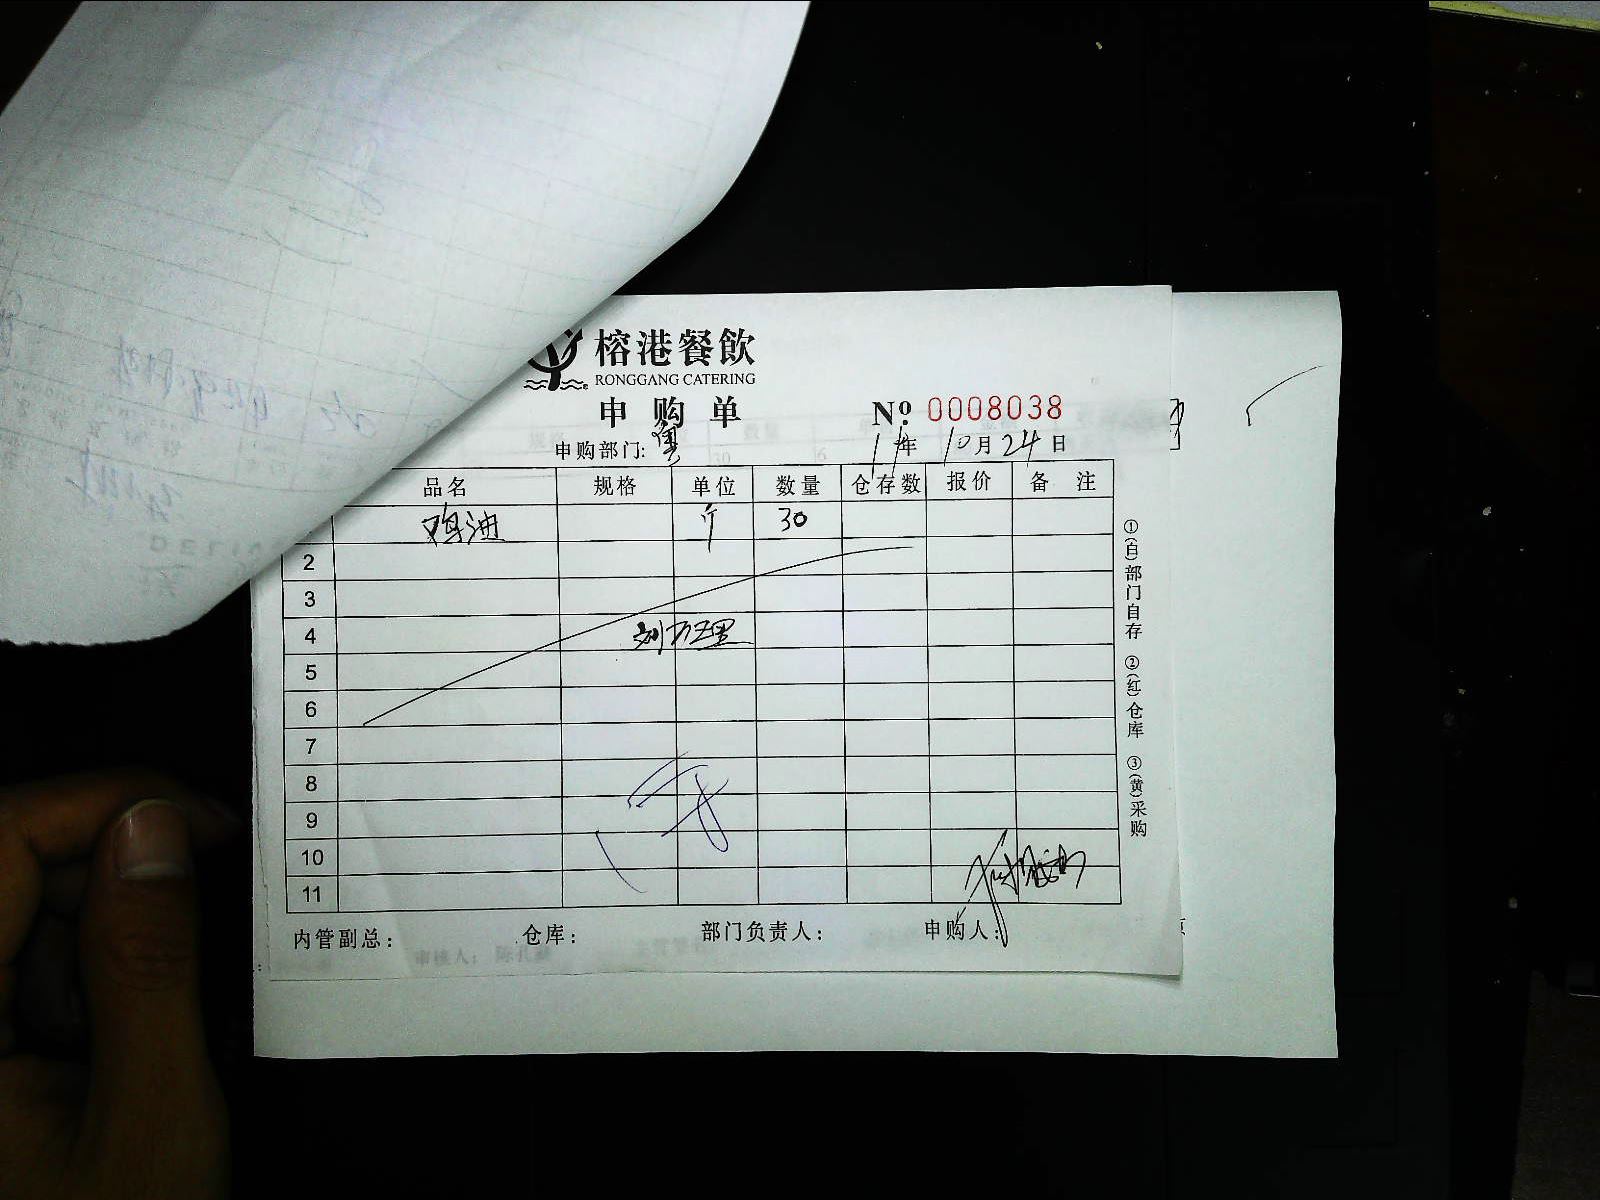 榕港餐飲
RONGGANG CATERING
申购单
Nº 0008038
申购部门: 年 10月24日
品名 规格 单位 数量 仓存数 报价 备注
鸡油 斤 30
2
3
4 刘万里
5
6
7
8
9
10
11
内管副总： 仓库： 部门负责人： 申购人：
①(白)部门自存 ②(红)仓库 ③(黄)采购